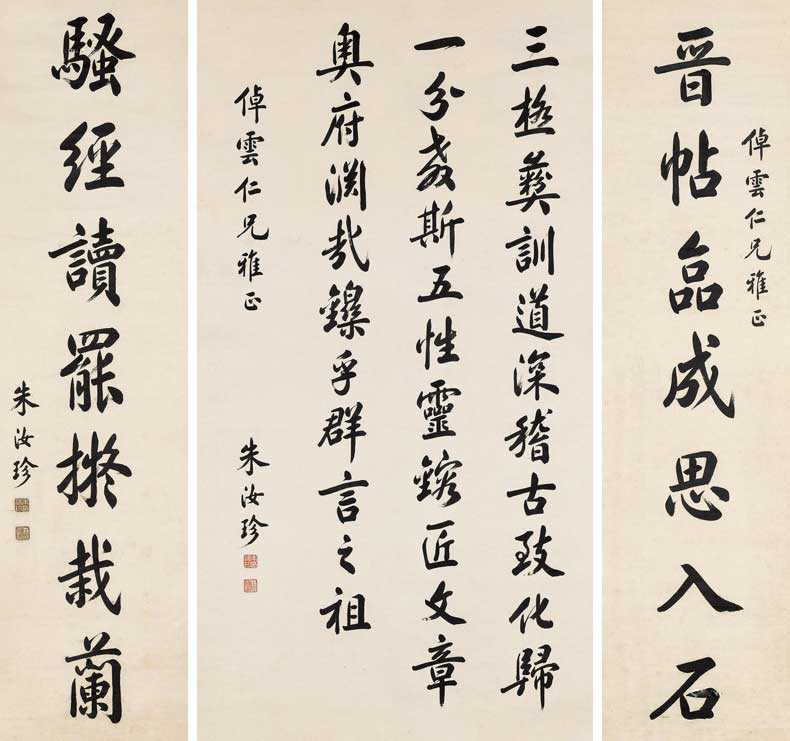 晋帖品成思入石
倬雲仁兄雅正
三極彝訓道深稽古致化歸
一分教斯五性靈鎔匠文章
奥府渊哉鑠乎群言之祖
倬雲仁兄雅正
朱汝珍
騷經讀罷擬栽蘭
朱汝珍